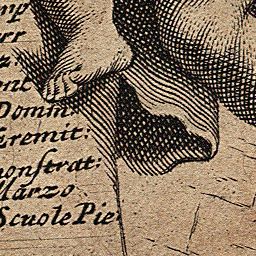 mp
rr
z:
ont
Domm:
Eremit:
monstrat:
Marzo
Scuole Pie